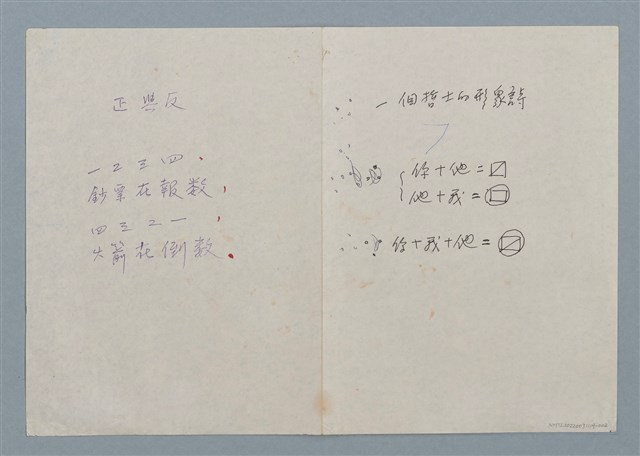 正與反
一二三四，
鈔票在報數，
四三二一，
火箭在倒數。
一個哲士的形象詩
你+他=
他+我=
你+我+他=